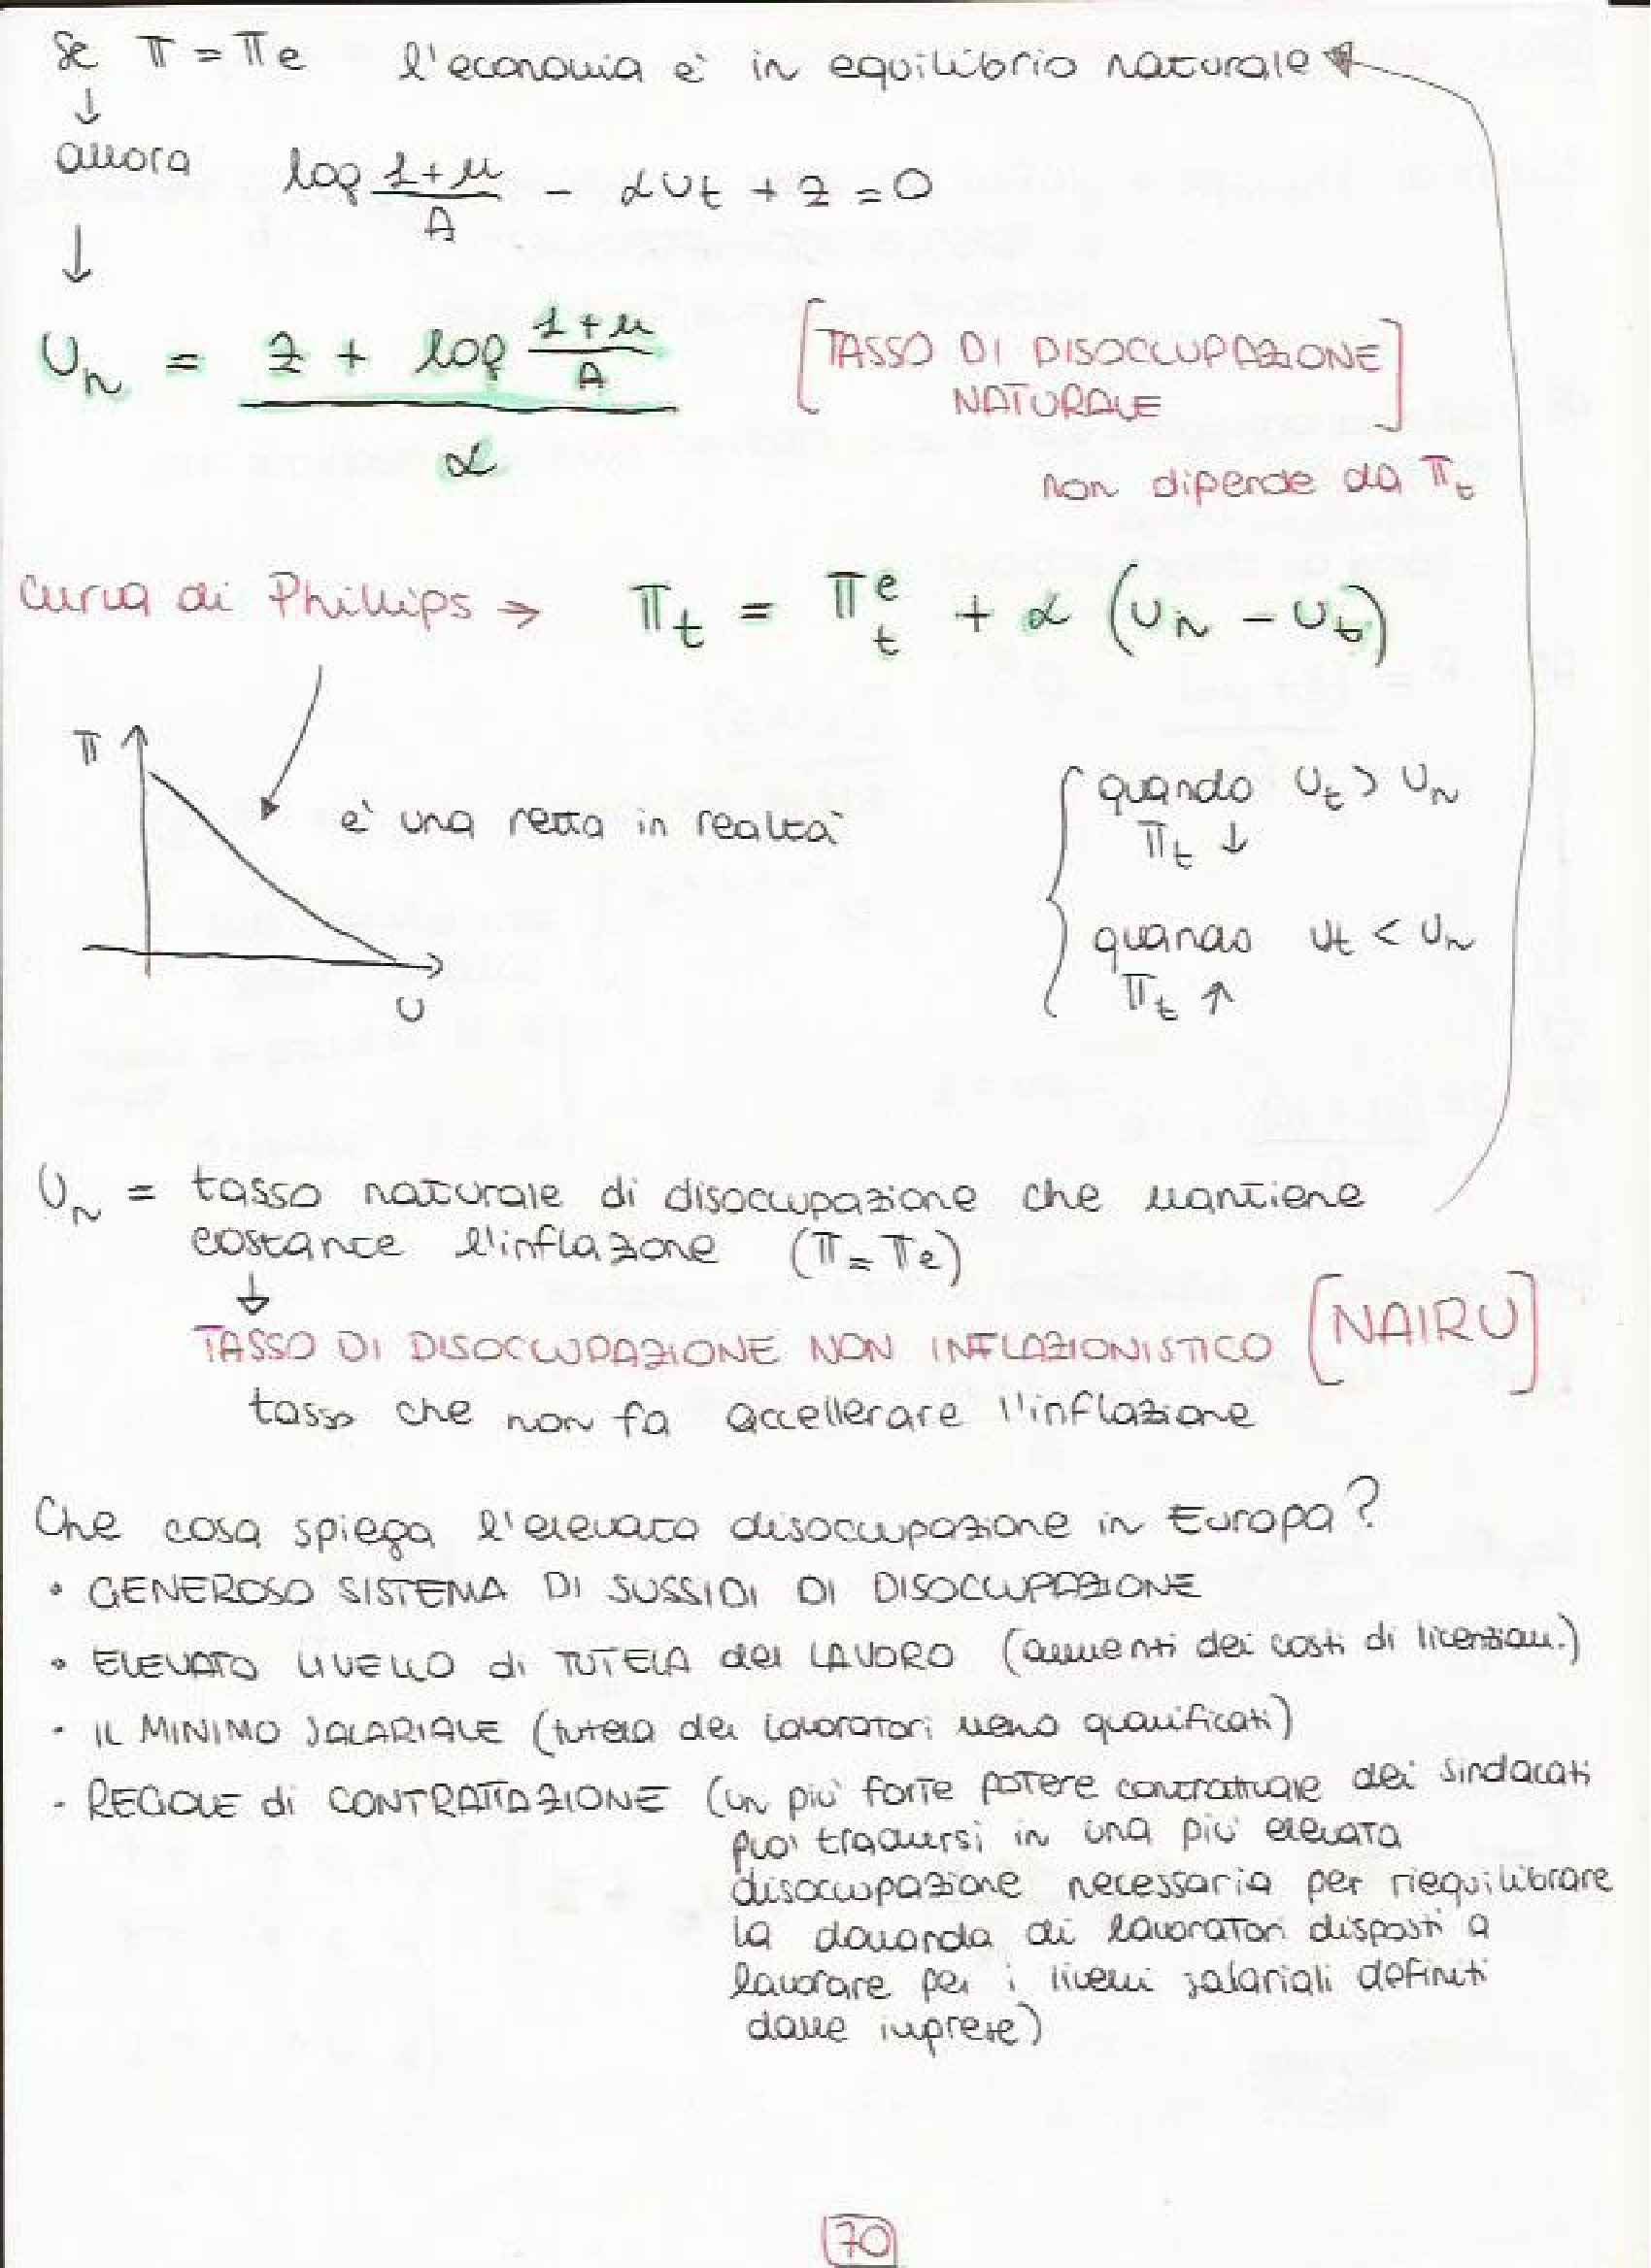 Se π = πe l'economia è in equilibrio naturale
↓
allora log (1+μ)/A - αUt + z = 0
↓
Un = (z + log (1+μ)/A) / α [TASSO DI DISOCCUPAZIONE NATURALE]
non dipende da πt
Curva di Phillips → πt = πt^e + α (Un - Ut)
π
è una retta in realtà
U
quando Ut > Un
πt ↓
quando Ut < Un
πt ↑
Un = tasso naturale di disoccupazione che mantiene
costante l'inflazone (π = πe)
↓
TASSO DI DISOCCUPAZIONE NON INFLAZIONISTICO [NAIRU]
tasso che non fa accellerare l'inflazione
Che cosa spiega l'elevata disoccupazione in Europa?
• GENEROSO SISTEMA DI SUSSIDI DI DISOCCUPAZIONE
• ELEVATO LIVELLO di TUTELA del LAVORO (aumenti dei costi di licenziam.)
• IL MINIMO SALARIALE (tutela dei lavoratori meno qualificati)
- REGOLE di CONTRATTAZIONE (un più forte potere contrattuale dei sindacati
può tradursi in una più elevata
disoccupazione necessaria per riequilibrare
la domanda di lavoratori disposti a
lavorare per i livelli salariali definiti
dalle imprese)
70